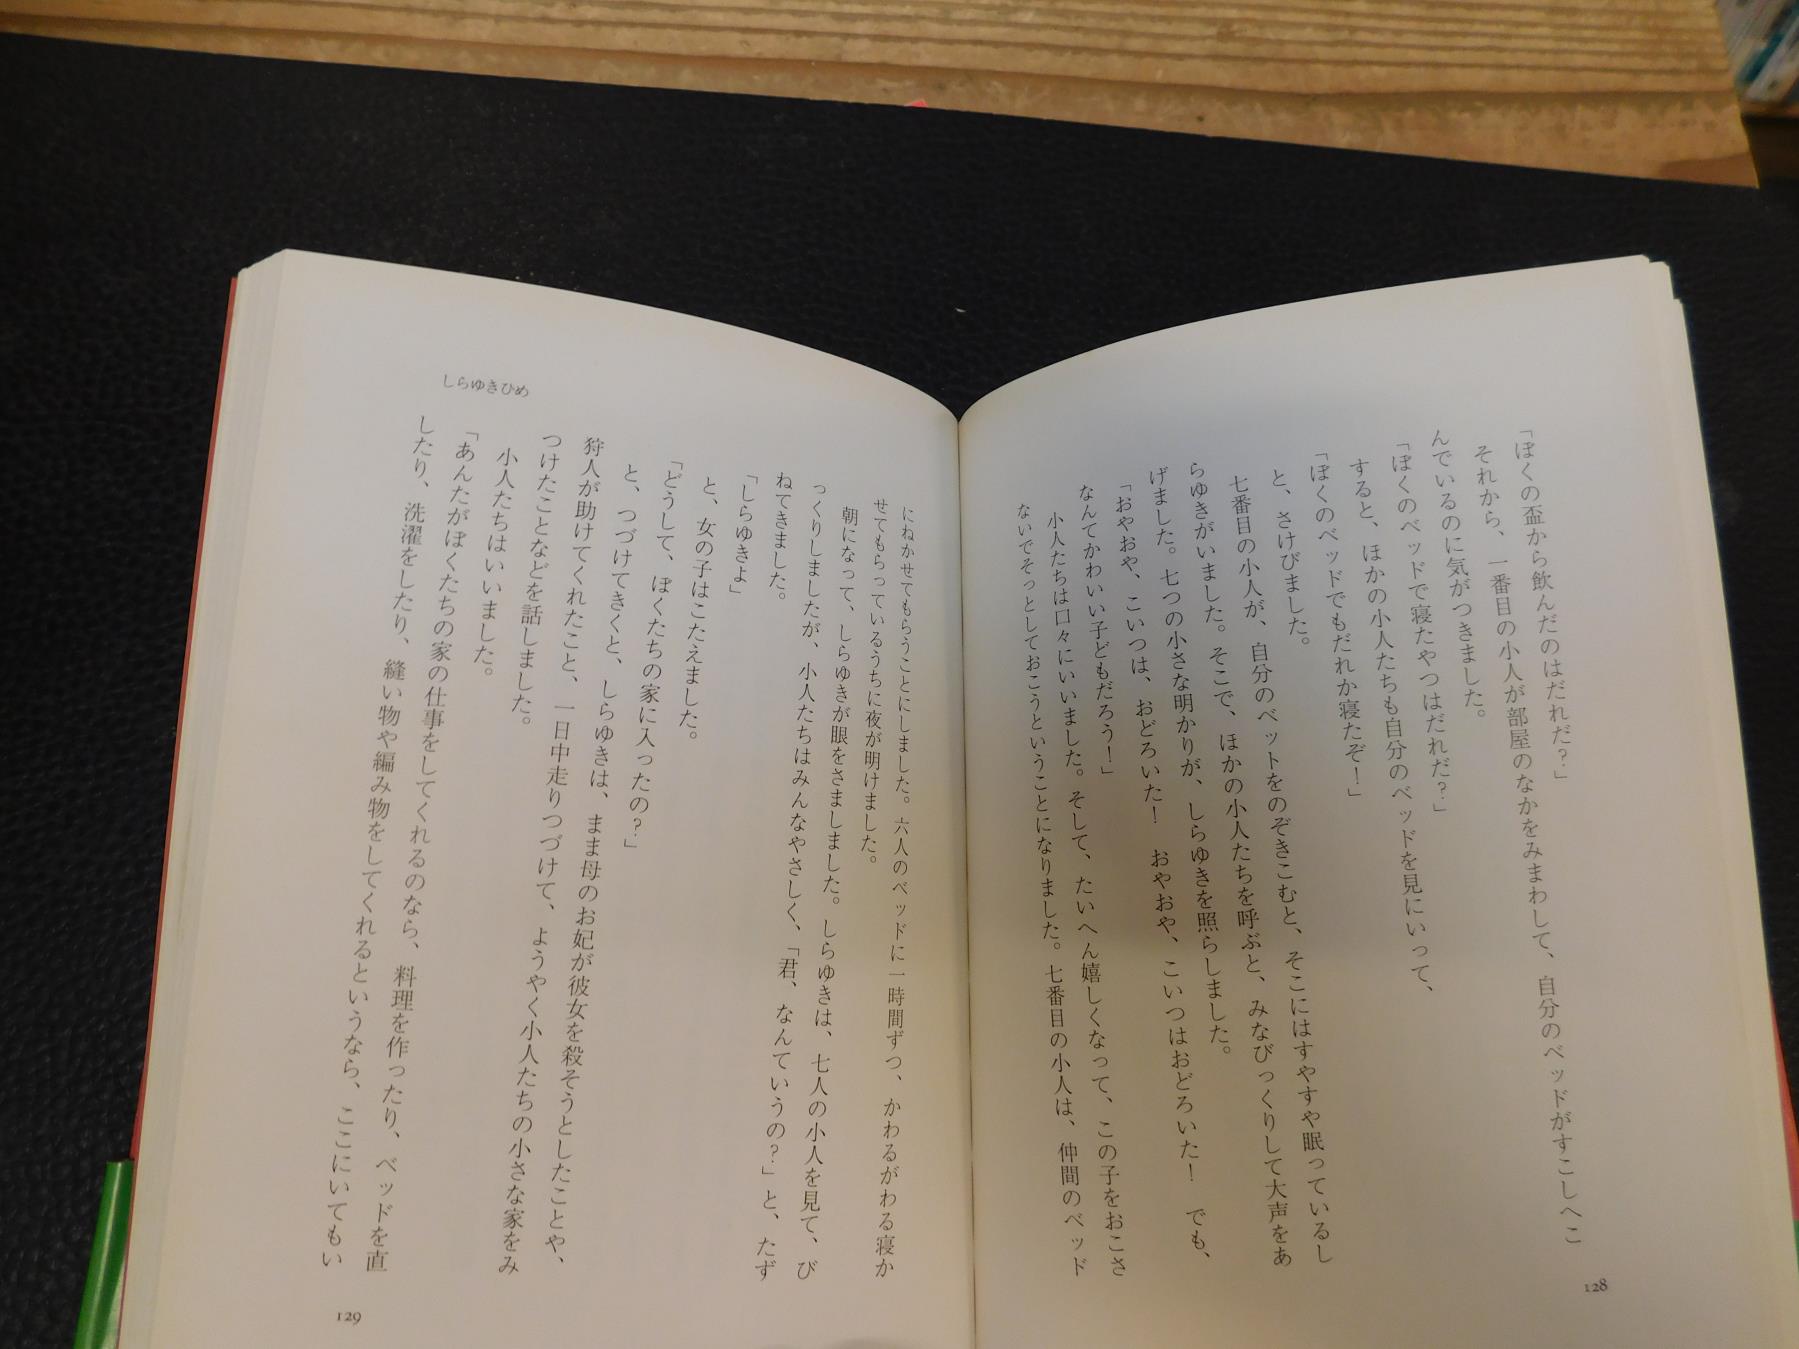 「ぼくの盃から飲んだのはだれだ?」
それから、一番目の小人が部屋のなかをみまわして、自分のベッドがすこしへこ
んでいるのに気がつきました。
「ぼくのベッドで寝たやつはだれだ?」
すると、ほかの小人たちも自分のベッドを見にいって、
「ぼくのベッドでもだれか寝たぞ!」
と、さけびました。
七番目の小人が、自分のベットをのぞきこむと、そこにはすやすや眠っているし
らゆきがいました。そこで、ほかの小人たちを呼ぶと、みなびっくりして大声をあ
げました。七つの小さな明かりが、しらゆきを照らしました。
「おやおや、こいつは、おどろいた! おやおや、こいつはおどろいた! でも、
なんてかわいい子どもだろう!」
小人たちは口々にいいました。そして、たいへん嬉しくなって、この子をおこさ
ないでそっとしておこうということになりました。七番目の小人は、仲間のベッド
128
にねかせてもらうことにしました。六人のベッドに一時間ずつ、かわるがわる寝か
せてもらっているうちに夜が明けました。
朝になって、しらゆきが眼をさましました。しらゆきは、七人の小人を見て、び
っくりしましたが、小人たちはみんなやさしく、「君、なんていうの?」と、たず
ねてきました。
「しらゆきよ」
と、女の子はこたえました。
「どうして、ぼくたちの家に入ったの?」
と、つづけてきくと、しらゆきは、まま母のお妃が彼女を殺そうとしたことや、
狩人が助けてくれたこと、一日中走りつづけて、ようやく小人たちの小さな家をみ
つけたことなどを話しました。
小人たちはいいました。
「あんたがぼくたちの家の仕事をしてくれるのなら、料理を作ったり、ベッドを直
したり、洗濯をしたり、縫い物や編み物をしてくれるというなら、ここにいてもい
しらゆきひめ
129